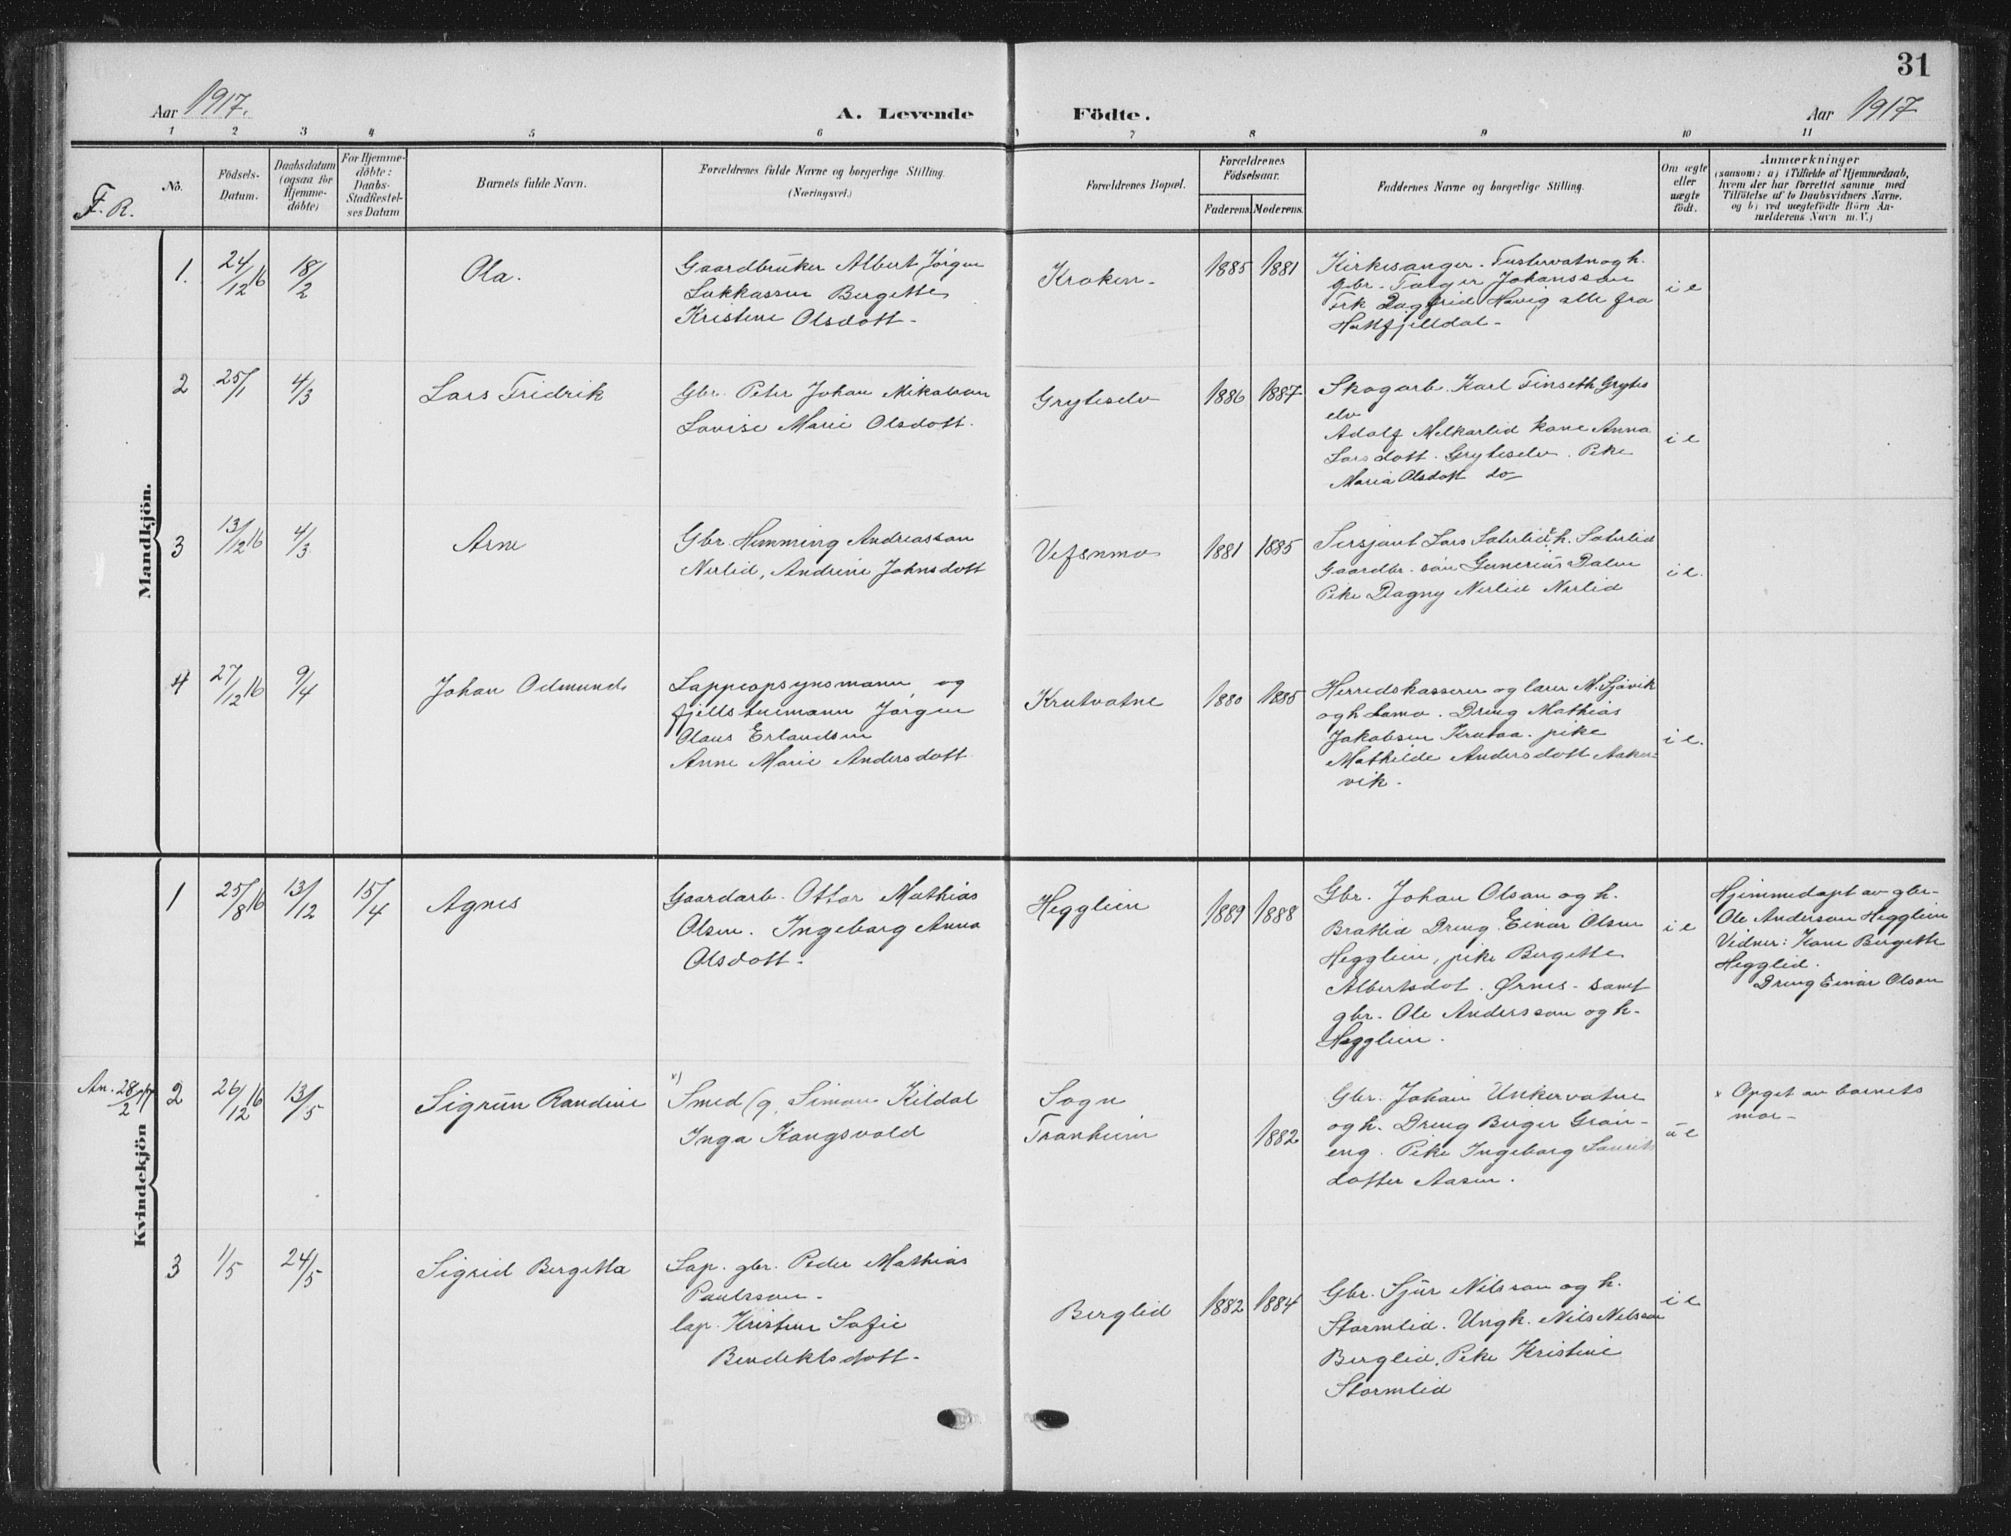 31
Aar 1917.
A. Levende Födte.
Aar 1917
1 2 3 4 5 6 7 8 9 10 11
F. R.
No.
Födsels-
Datum.
Daabsdatum
(ogsaa for
Hjemme-
döbte)
For Hjemme-
döbte:
Daabs-
Stadfæstel-
ses Datum
Barnets fulde Navn.
Forældrenes fulde Navne og borgerlige Stilling.
(Næringsvei.)
Forældrenes Bopæl.
Forældrenes
Födselsaar.
Faderens. Moderens.
Faddernes Navne og borgerlige Stilling.
Om ægte
eller
uægte
født.
Anmærkninger
(saasom: a) i Tilfælde af Hjemmedaab,
hvem der har forrettet samme med
Tilföielse af to Daabsvidners Navne.
og b) ved uægtefödte Börn An-
melderens Navn m. V.)
Mandkjön.
1. 24/12 16 18/2 Ola.
Gaardbruker Albert Jörgen
Lukkassen Bergette
Kristine Olsdott.
Kroken. 1885 1881
Kirkesanger Fustervatn og h.
gbr. Torger Johanssen
Frk Dagfrid Havig alle fra
Hatfjelldal.
i e
2 25/1 4/3 Lars Fridrik
Gbr. Peter Johan Mikalsen
Lovise Marie Olsdott.
Gryteselv 1886 1887
Skogarb. Karl Finseth Grytes
elv
Adolf Melkarlid kone Anna
Larsdott. Gryteselv. Pike
Maria Olsdott do
i e
3 13/12 16 4/3 Arne
Gbr. Hemming Andreassan
Nerlid, Andrine Johnsdott
Vefsnmo 1881 1885
Sersjant Lars Saterlid h. Saterlid
Gaardbr. sön Gunerius Dalen
Pike Dagny Nerlid Nerlid
i e.
4 27/12 16 9/4 Johan Odmund
Lappeopsynsmann og
fjellstuemann Jörgen
Olaus Erlandsen
Anne Marie Andersdott
Krutvatne 1880 1885
Herredskasserer og lærer M. Sjövik
og h Lamo. Dreng Mathias
Jakobsen Krutaa. pike
Mathilde Andersdott Aaker-
vik.
i e.
Kvindekjön
1 25/8 16 13/12 15/4 Agnes
Gaardarb. Ottar Mathias
Olsen. Ingeborg Anna
Olsdott.
Hegglien 1889 1888
Gbr. Johan Olsan og h.
Brattlid Dreng Einar Olsen
Hegglien, pike Bergette
Albertsdot. Ørnes. samt
gbr. Ole Anderssan og h.
Hegglien.
i e
Hjemmedöpt av gbr.
Ole Andersan Hegglien
Vidner: Kone Bergette
Hegglid.
Dreng Einar Olsan
An. 28/2 17 2 26/12 16 13/5 Sigrun Randine
x) Smed (g. Simon Kildal
Inga Kongsvold
Sogn
Tronheim
1882
Gbr. Johan Unkervatne
og h. Dreng Birger Grön-
eng. Pike Ingeborg Laurits
dotter Aasen.
u e
x Opget av barnets
mor.
3 1/5 24/5 Sigrid Bergitta
Lap. gbr. Peder Mathias
Paulssan.
lap. Kristine Sofie
Bendiktsdott.
Berglid 1882 1884
Gbr. Sjur Nilssan og h.
Stormlid. Ungk. Nils Nilssan
Berglid. Pike Kristine
Stormlid
i e